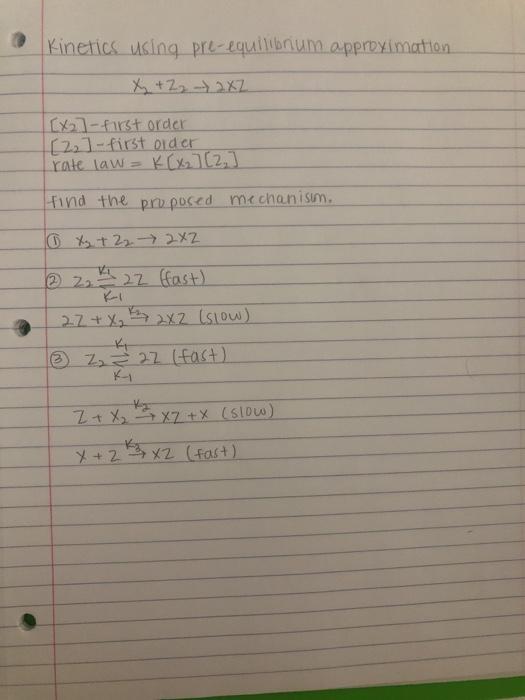 Kinetics using pre-equilibrium approximation
X₂ + Z₂ → 2XZ
[X₂] - first order
[Z₂] - first order
rate law = K[X₂][Z₂]
find the proposed mechanism.
① X₂ + Z₂ → 2XZ
② Z₂ ⇌ 2Z (fast) K₁ K-1
2Z + X₂ →K₂ 2XZ (slow)
③ Z₂ ⇌ 2Z (fast) K₁ K-1
Z + X₂ →K₂ XZ + X (slow)
X + Z →K₃ XZ (fast)